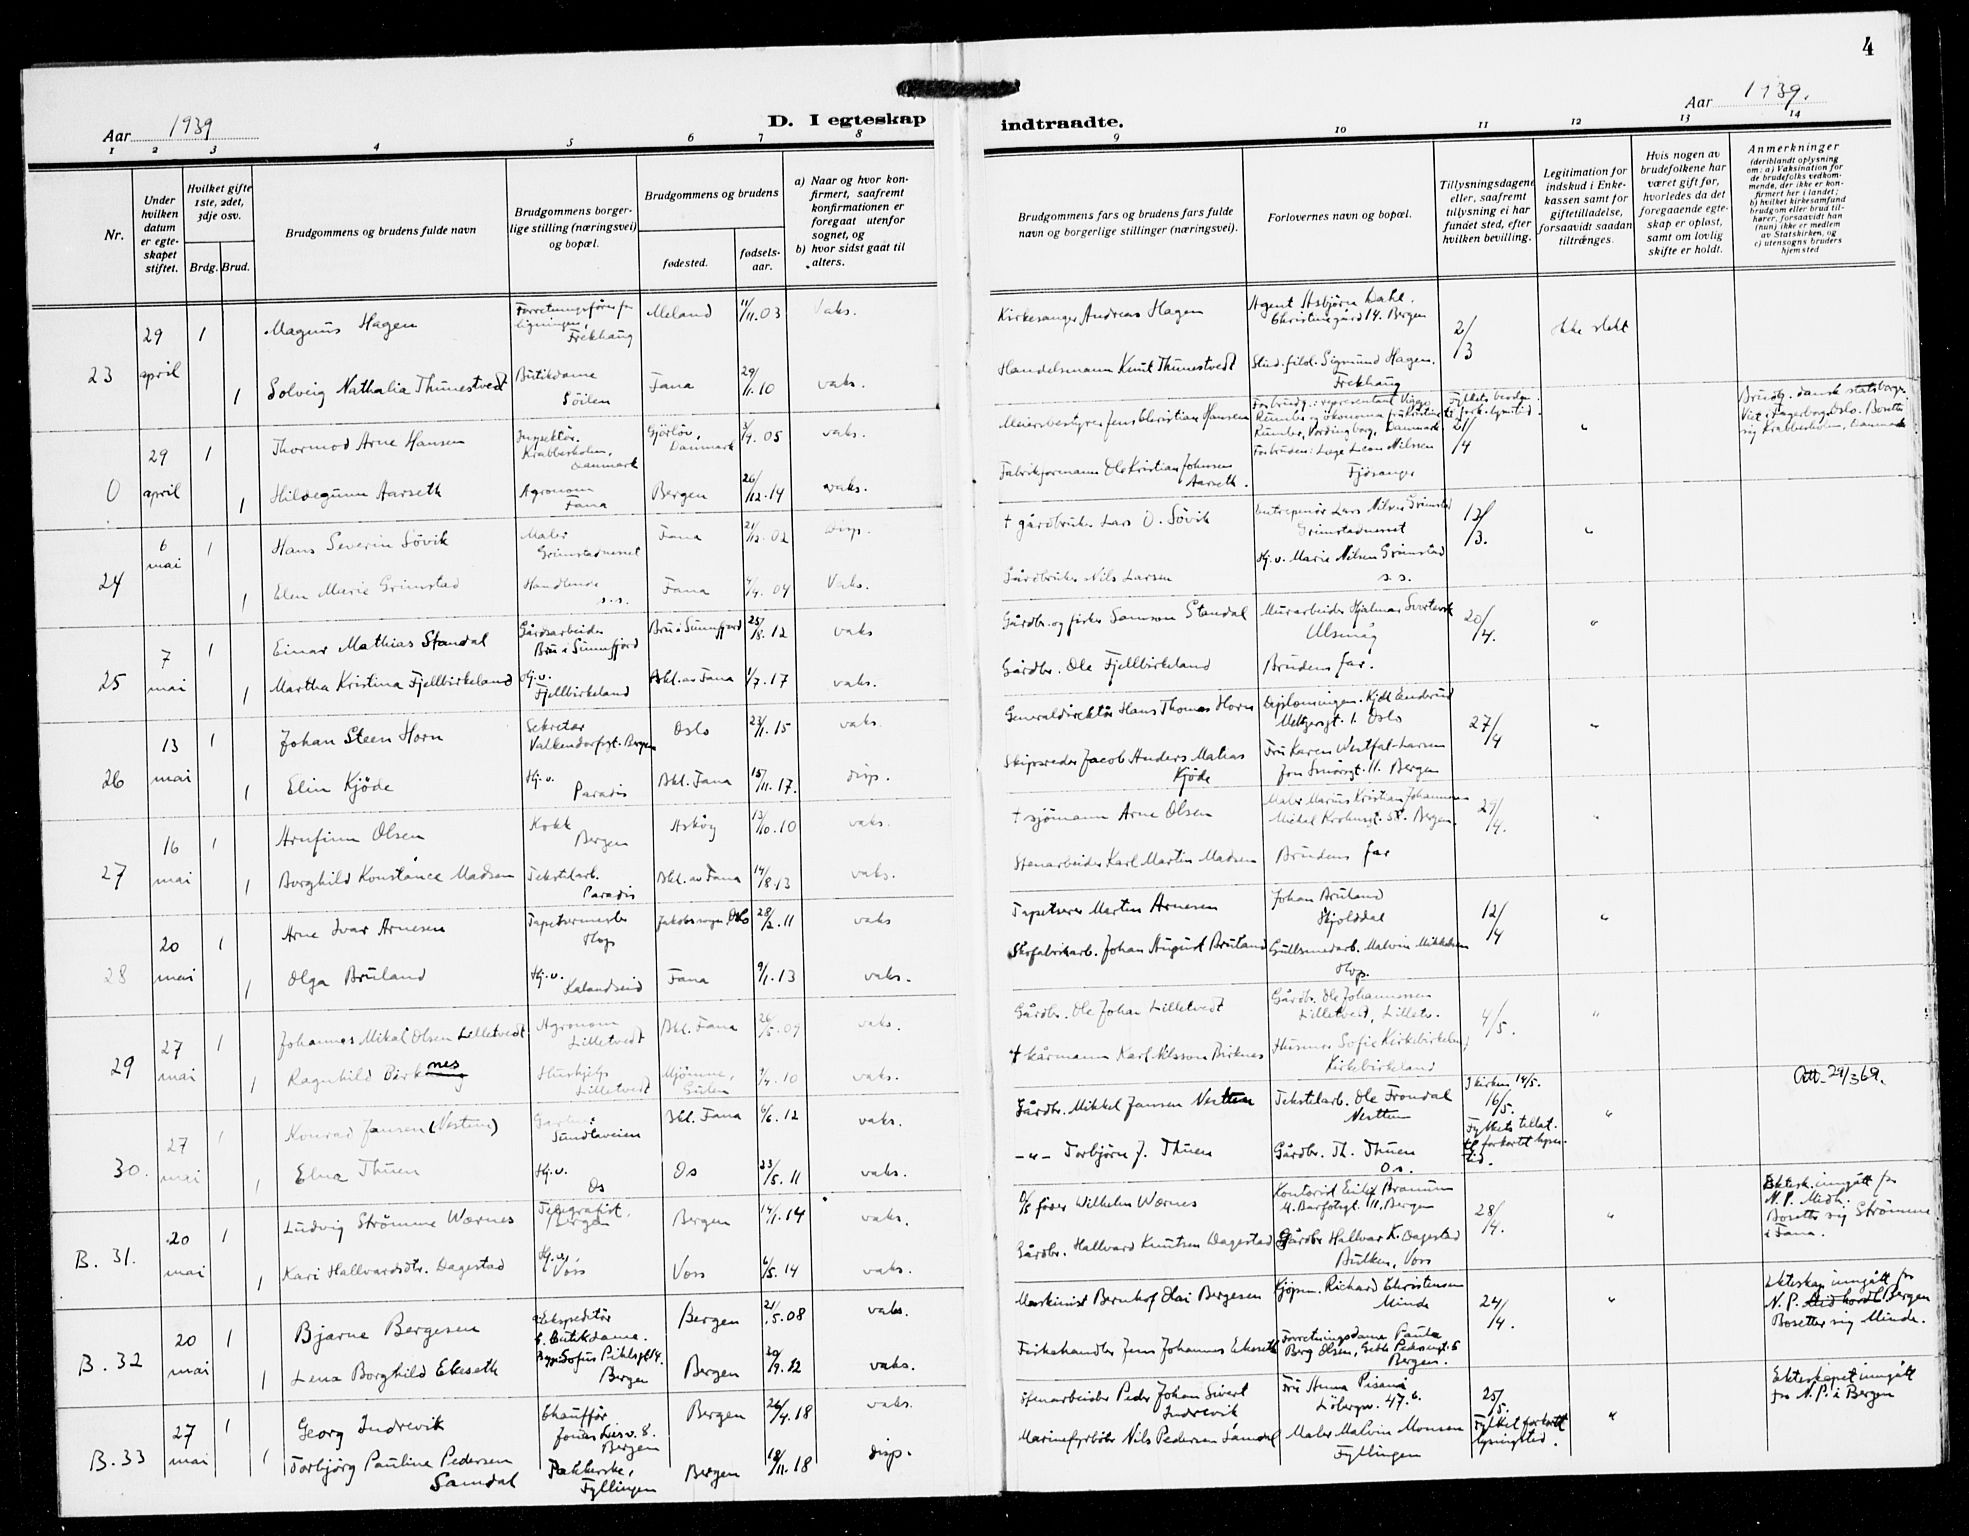 4
Aar 1939
D. I egteskap indtraadte.
Aar 1939.
1 2 3 4 5 6 7 8 9 10 11 12 13 14
Nr.
Under hvilken datum er egteskapet stiftet.
Hvilket gifte 1ste, 2det, 3dje osv.
Brdg. Brud.
Brudgommens og brudens fulde navn
Brudgommens borgerlige stilling (næringsvei) og bopæl.
Brudgommens og brudens
fødested.
fødselsaar.
a) Naar og hvor konfirmert, saafremt konfirmationen er foregaat utenfor sognet, og
b) hvor sidst gaat til alters.
Brudgommens fars og brudens fars fulde navn og borgerlige stillinger (næringsvei).
Forlovernes navn og bopæl.
Tillysningsdagene eller, saafremt tillysning ei har fundet sted, efter hvilken bevilling.
Legitimation for indskud i Enkekassen samt for giftetilladelse, forsaavidt saadan tiltrænges.
Hvis nogen av brudefolkene har været gift før, hvorledes da det foregaaende egteskap er opløst, samt om lovlig skifte er holdt.
Anmerkninger
(deriblandt oplysning om: a) Vaksination for de brudefolks vedkommende, der ikke er konfirmert her i landet; b) hvilket kirkesamfund brudgom eller brud tilhører, forsaavidt han (hun) ikke er medlem av Statskirken, og c) utensogns bruders hjemsted
23 29 april 1 Magnus Hagen Forretningsfører for ligningen, Frekhaug Meland 11/11.03 Vaks. Kirkesanger Andreas Hagen Agent Asbjørn Dahl. Christinegård 14. Bergen 2/3 Ikke slekt
1 Solveig Nathalia Thunestvedt Butikdame Söilen Fana 29/1.10 vaks. Handelsmann Knut Thunestvedt Stud. filol. Sigmund Hagen. Frekhaug
0 29 april 1 Thormod Arne Hansen Inspektör. Krabbesholm, Danmark Gjörlöv, Danmark 3/9.05 vaks. Meieribestyrer Jens Christian Hansen 21/4 "
1 Hildegunn Aarseth Agronom Fana Bergen 26/12.14 vaks. Fabrikformann Ole Kristian Johnsen Aarseth. Fjösanger
24 6 mai 1 Hans Severin Sövik Maler Grimstadnesset Fana 21/12.02 disp. + gårdbruker Lars O. Sövik Entreprenör Lars Nilsen Grimstad Grimstadnesset 12/3. "
1 Elen Marie Grimstad Handlende s.s. Fana 7/4.04 Vaks. Gårdbruker Nils Larsen Hj.v. Marie Nilsen Grimstad s.s.
25 7 mai 1 Einar Mathias Standal Gårdsarbeider Bru i Sunnfjord Bru i Sunnfjord 25/8.12 vaks Gårdbr. og fisker Samson Standal Murarbeider Hjalmar Svortevik Ulsmåg 20/4. "
1 Martha Kristina Fjellbirkeland Hj.v. Fjellbirkeland Bkl. av Fana 1/7.17 vaks. Gårdbr. Ole Fjellbirkeland Brudens far.
26 13 mai 1 Johan Steen Horn Sekretær Valkendorfsgt. Bergen Oslo 23/1.15 vaks. Generaldirektör Hans Thomas Horn Diplomingen. Kjell Enderud Meltzersgt. 1. Oslo 27/4 "
1 Elin Kjöde Hj.v. Paradis Bkl. Fana 15/11.17. disp. Skipsreder Jacob Anders Matias Kjöde Fru Karen Westfal-Larsen Jon Smörsgt. 11. Bergen
27 16 mai 1 Arnfinn Olsen Kokk Bergen Askøy 13/10.10 vaks. + sjömann Arne Olsen Maler Marius Kristian Johannesen Bergen. 29/4. "
1 Borghild Konstance Madsen Tekstilarb. Paradis Bkl. av Fana 14/8.13 vaks. Stenarbeider Karl Martin Madsen Brudens far
28 20 mai 1 Arne Ivar Arnesen Tapetsermester Hop Jakobs sogn, Oslo 28/2.11 vaks Tapetserer Martin Arnesen Johan Bruland Skjolddal 12/4 "
1 Olga Bruland Hj.v. Kalandseid Fana 9/1.13 vaks. Skofabrikarb. Johan August Bruland Gullsmedarb. Malvin Mikkelsen Hop.
29 27 mai 1 Johannes Mikal Olsen Lilletvedt Agronom Lilletvedt Bkl. Fana 26/5.09 vaks. Gårdbr. Ole Johan Lilletvedt Gårdbr. Ole Johannessen Lilletvedt, Lilletv. 4/5. "
1 Ragnhild Birknes Hushjelp Lilletvedt Mjömna, Gulen 7/4.10 vaks. + kårmann Karl Nilsson Birknes Husmor Sofie Kirkebirkeland, Kirkebirkeland
30. 27 mai 1 Konrad Jansen (Nestun) Sundtsveien Bkl. Fana 9/6.12 vaks. Gårdbr. Mikkel Jansen Nesttun Tekstilarb. Ole Frondal Nesttun I kirken 14/5. 16/5. Fylkets tillat. til forkortet lysn.tid. " Att. 29/3 69.
1 Elna Thuen Hj.v. Os Os 23/5.11 vaks. -"- Torbjörn J. Thuen Gårdbr. Th. Thuen Os.
B. 31. 20 mai 1 Ludvig Strömme Wærnes Telegrafist, Bergen Bergen 14/1.14 vaks. D/S förer Wilhelm Wærnes Kontorist Bergen 28/4. " Ektesk. inngått for N.P. Midh. Bosetter sig Strömme i Fana.
1 Kari Hallvardsdtr. Dagestad Hj.v., Voss Voss 6/5.14 vaks. Gårdbr. Hallvard Knutsen Dagestad Gårdbr Hallvar K. Dagestad Bulken, Voss
B. 32 20 mai 1 Bjarne Bergesen Ekspeditör Bergen 21/5.08 vaks. Maskinist Bernhof Olai Bergesen Kjöpm. Richard Christensen Minde 24/4. " Ekteskap inngått for N.P. Midhordl. Bergen Bosetter sig Minde.
1 Lena Borghild Ekeseth b. Butikdame. Sofus Pihlsgt. 14. Bergen Bergen 20/9.12 vaks. Fiskehandler Jens Johannes Ekeseth Forretningsdame Paula Berg Olsen, Bergen.
B. 33 27 mai 1 Georg Indrevik Chaufför Jonas Liesv. 8. Bergen Bergen 26/4.18 vaks. Stenarbeider Peder Johan Sivert Indrevik Fru Anna Pisani Löbergsv. 47.b. 25/5. Fylket forkortet lysningstid. " Ekteskapet inngått for N.P. i Bergen
1 Torbjörg Pauline Pedersen Samdal Pakkerske, Fyllingen Bergen 18/11.18 disp. Marinefyrböter Nils Pedersen Samdal Maler Malvin Monsen Fyllingen